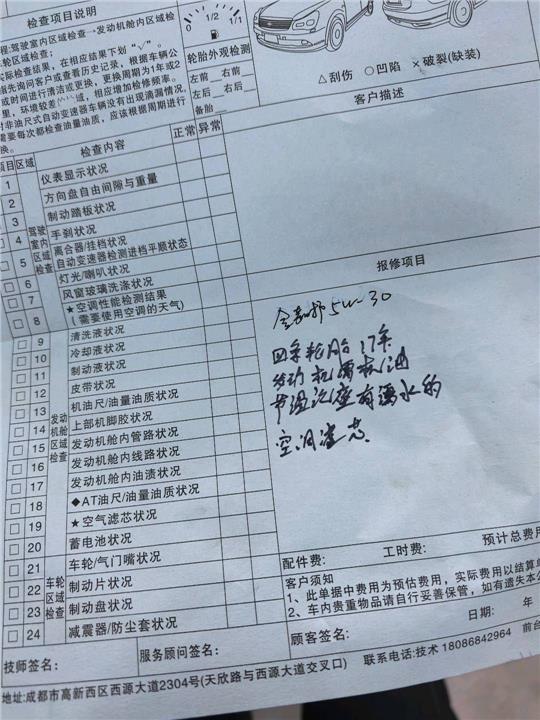 检查项目说明
程:驾驶室内区域检查→发动机舱内区域检
轮区域检查;
实际检查结果,在相应结果下划"√"。
指先询问客户或查看历史记录,根据车辆公
或时间进行清洁或更换,更换周期为1年或2
里,环境较差
域,相应增加检修频率。
对非油尺式自动变速器车辆没有出现滴漏情况,
需要每次都检查油量油质,应该根据周期进行
换。
0 1/2 1/1
轮胎外观检测
左前 右前
左后 右后
备胎
△刮伤 ○凹陷 ×破裂(缺装)
客户描述
项目 区域 检查内容 正常 异常
驾驶室内区域检查
1 仪表显示状况
2 方向盘自由间隙与重量
3 制动踏板状况
4 手刹状况
5 离合器/挂档状况
自动变速器检测进档平顺状态
6 灯光/喇叭状况
7 风窗玻璃洗涤状况
8 ★空调性能检测结果
(需要使用空调的天气)
发动机舱区域检查
9 清洗液状况
10 冷却液状况
11 制动液状况
12 皮带状况
13 机油尺/油量油质状况
14 上部机脚胶状况
15 发动机舱内管路状况
16 发动机舱内线路状况
17 发动机舱内油渍状况
18 ◆AT油尺/油量油质状况
19 ★空气滤芯状况
20 蓄电池状况
车轮区域检查
21 车轮/气门嘴状况
22 制动片状况
23 制动盘状况
24 减震器/防尘套状况
报修项目
5W-30
四条轮胎17年
发动机漏机油
节温器座有漏水的
空调滤芯
配件费: 工时费: 预计总费用
客户须知
1、此单据中费用为预估费用,实际费用以结算单
2、车内贵重物品请自行妥善保管,如有遗失本公
日期: 年
技师签名: 服务顾问签名: 顾客签名:
地址:成都市高新西区西源大道2304号(天欣路与西源大道交叉口) 联系电话:技术 18086842964 前台